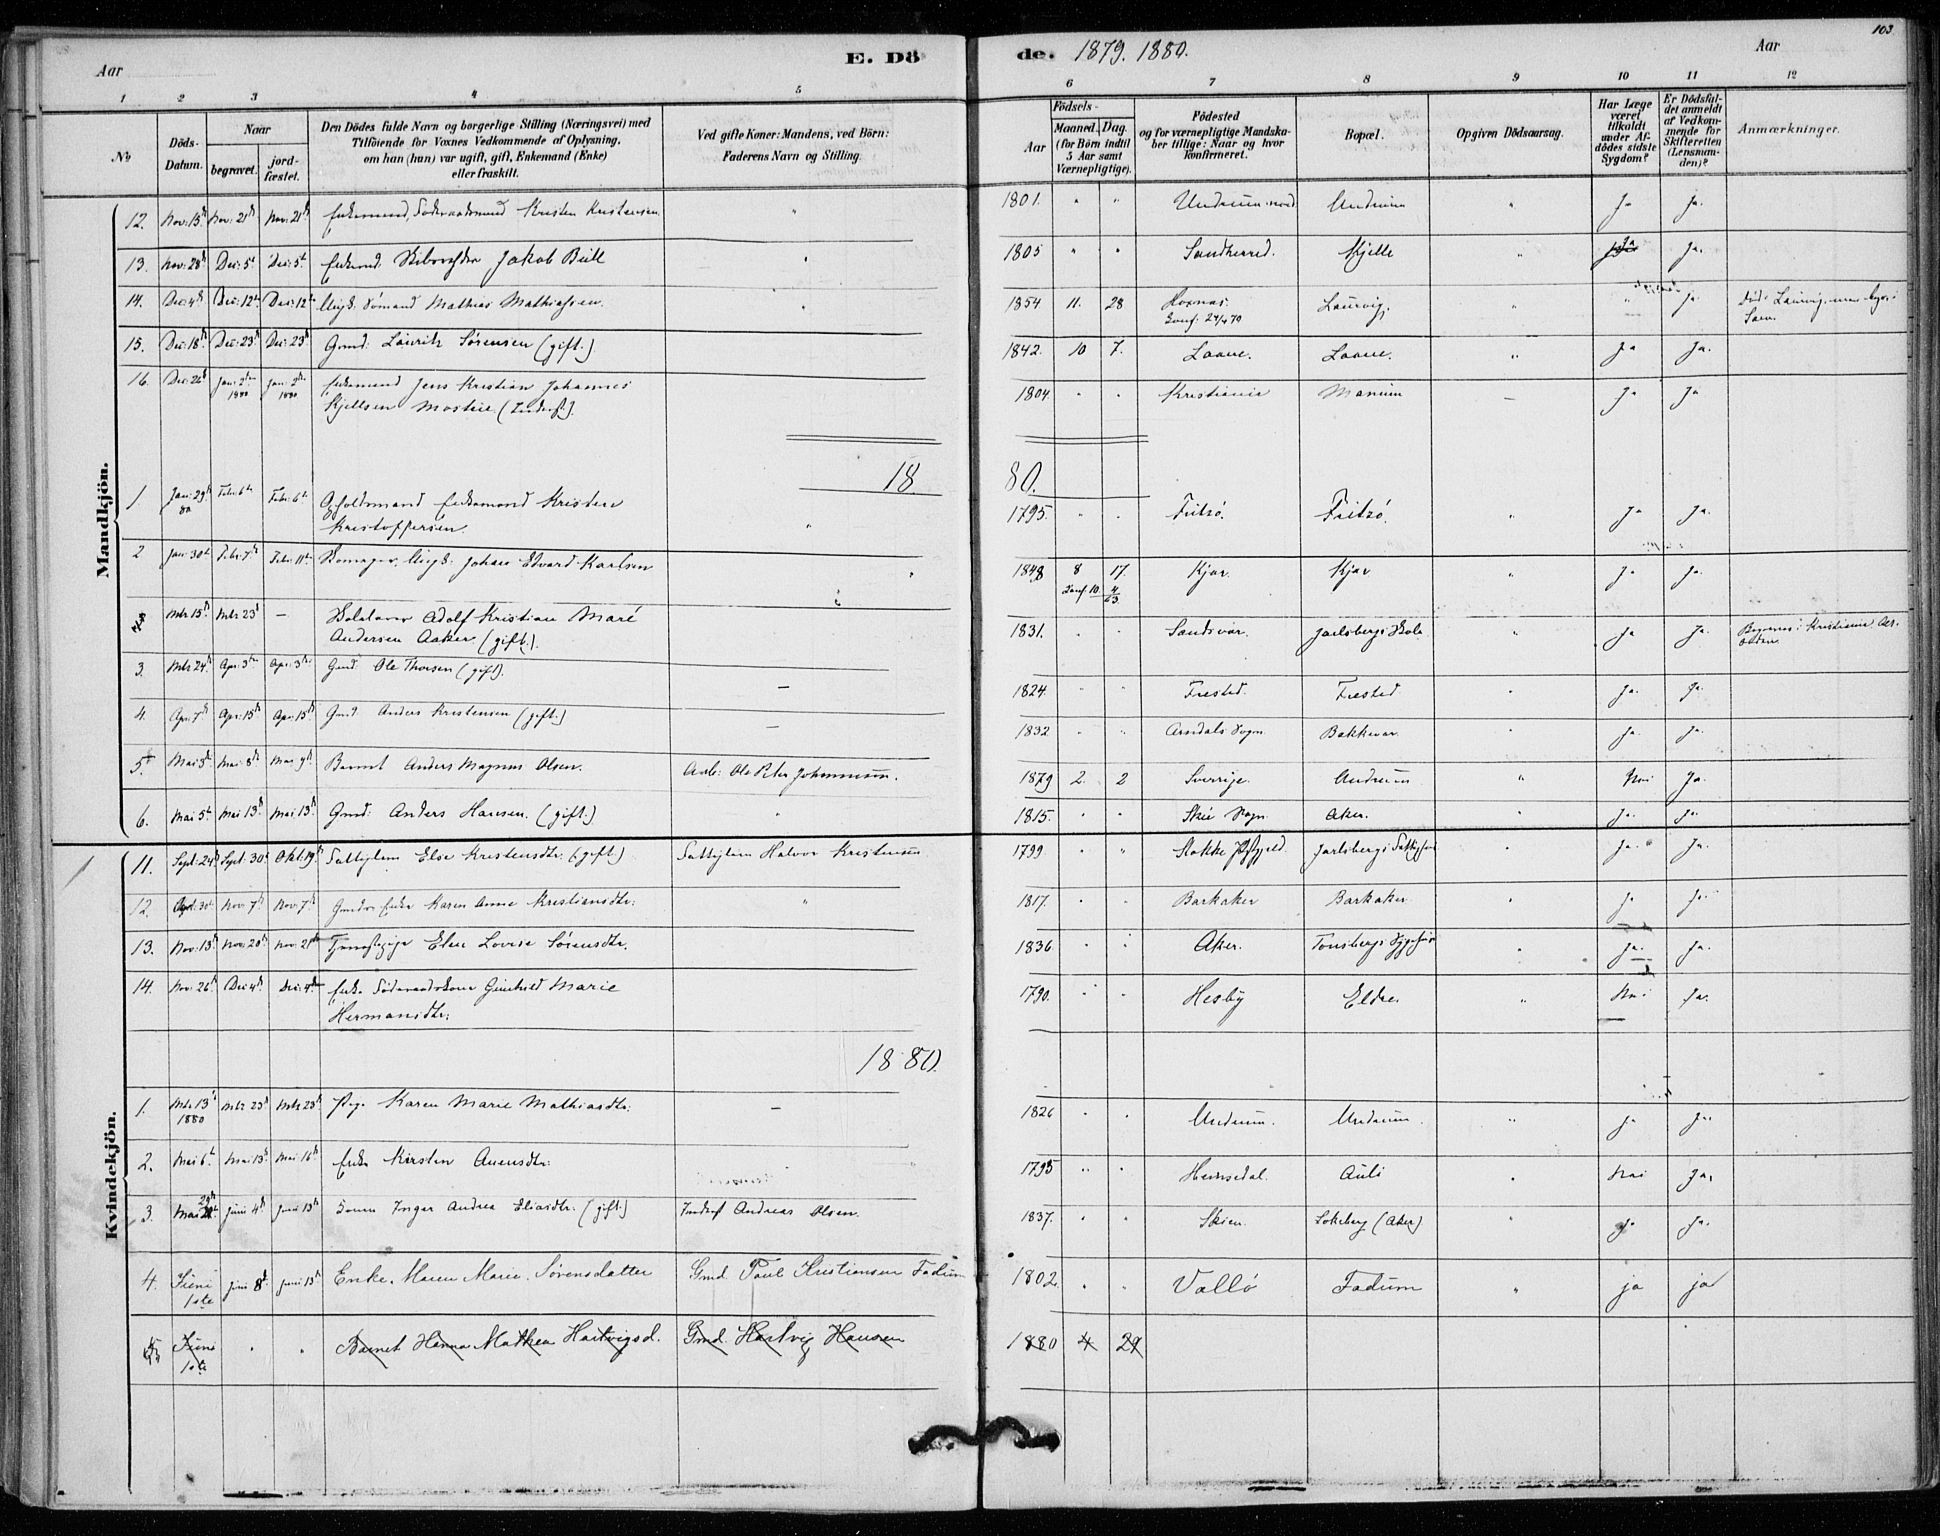 103
Aar E. Dö de. 1879. 1880. Aar
1 2 3 4 5 6 7 8 9 10 11 12
No Döds-Datum. Naar begravet. jord-fæstet. Den Dödes fulde Navn og borgerlige Stilling (Næringsvei) med Tilföiende for Voxnes Vedkommende af Oplysning, om han (hun) var ugift, gift, Enkemand (Enke) eller fraskilt. Ved gifte Koner: Mandens, ved Börn: Faderens Navn og Stilling. Aar Födsels- Maaned. Dag. (for Börn indtil 5 Aar samt Værnepligtige). Födested og for værnepligtige Mandskaber tillige: Naar og hvor konfirmeret. Bopæl. Opgiven Dödsaarsag. Har Læge været tilkaldt under Afdödes sidste Sygdom? Er Dödsfaldet anmeldt af Vedkommende for Skifteretten (Lensmanden)? Anmærkninger.
Mandkjön.
12. Nov: 15de Nov: 21de Nov: 21de Enkemand, Kristen Kristensen. " 1801. " " Undrum Undrum " Ja Ja.
13. Nov: 28de Dec: 5te Dec: 5te Enkemd: Jakob Bull " 1805 " " Sandherred. Kjelle " Ja Ja.
14. Dec: 4de Dec: 12te Dec: 12te Ungk. Sømand Mathias Mathiassen. " 1854 11. 28 Laurvig. " " Ja.
15. Dec: 18de Dec: 23de Dec: 23de Gmd: Laurits Sørensen (gift.) 1842. 10 7. Laane. Laane. " Ja Ja.
16. Dec: 26de Jan: 2den 1880 Jan: 2den 1880 Enkemand Jens Kristian Johannes Kjellsen (Inderst). 1804. " " Kristiania — Ja Ja
1880.
1 Jan: 29de 80 Febr: 6te Febr: 6te Enkemand Kristen Kristoffersen. " 1795. " " Fritsö. Fritsö. " Ja Ja.
2 Jan: 30te Febr: 7de Febr: 11te Ungk. Johan Edvard Karlsen " 1848 8 17. Kjær. Kjær " Ja Ja.
Mts 15de Mts 23de — Adolf Kristian Andersen Aaker (gift.). 1831. " " Sandsvær. Jarlsbergs Skole " Ja Ja.
3. Mts 24de Apr: 3die Apr: 3die Gmd: Ole Thorsen (gift). — 1824. " " Frested. Frested " Ja. Ja.
4. Apr: 7de Apr: 15de Apr: 15de Gmd: Anders Kristensen (gift.) — 1832 " " Arndals Sogn. Bakkevar. " Ja. Ja.
5. Mai 3de Mai: 8de Mai 9de Barnet Anders Magnus Olsen. Arb: Ole Peter Johannesen. 1879 2. 2 Sverrige. Undrum " Nei Ja.
6. Mai 5te Mai 13de Mai 13de Gmd: Anders Hansen. (gift.) " 1815. " " Skie Sogn. Aker. " Ja. Ja.
Kvindekjön.
11. Sept: 24de Sept: 30te Okt: 19de Else Kristensdtr. (gift) Halvor Kristensen 1799 " " Stokke Jarlsbergs " Ja. Ja.
12. Nov: 7de Nov: 7de Karen Anne Kristiansdtr: " 1817. " " Barkaker Barkaker " Ja Ja.
13. Nov: 13de Nov: 20de Nov: 21de Tjenestepige Elen Lovise Sørensdtr. 1836. " " Aker. Tønsbergs Sygehus " Ja. Ja.
14. Nov: 26de Dec: 4de Dec: 4de Enke Gunhild Marie Hermansdtr: 1790. " " Hesby Eldre. " Nei Ja.
1880.
1. Mts 13de 1880 Mts 23de Mts 23de Pige Karen Marie Mathiasdtr. — 1826 " " Undrum. Undrum. " Ja Ja.
2. Mai 6te Mai 13de Mai 16de Enke Kirsten " 1795 " " Hemsedal. Auli " Nei Ja.
3. Mai 29de Juni 4de Juni 13de Konen Inger Andrea Eliasdtr. (gift) Inderst Andreas Olsen. 1837. " " Skien. (Aker) " Ja Ja.
4. Juni 1ste Juni 8de Juni 13de Enke. Maren Marie Sørensdatter Gmd. Poul Kristiansen Fadum 1802. " " Vallö Fadum " ja ja
5. Juni 1ste " " Barnet Hanna Mathea Hartvigsd. Gmd. Hartvig Hansen 1880 4 29